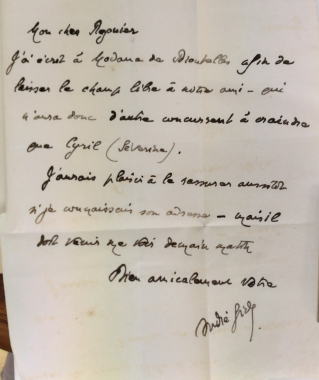 Mon cher Régnier
J'ai écrit à Madame de afin de
laisser le champ libre à notre ami - qui
n'aura donc d'autre concurrent à craindre
que Cyril (Séverine).
J'aurais plaisir à le rassurer aussitôt
si je connaissais son adresse - mais il
doit venir me voir demain matin
Bien amicalement votre
André Gide.